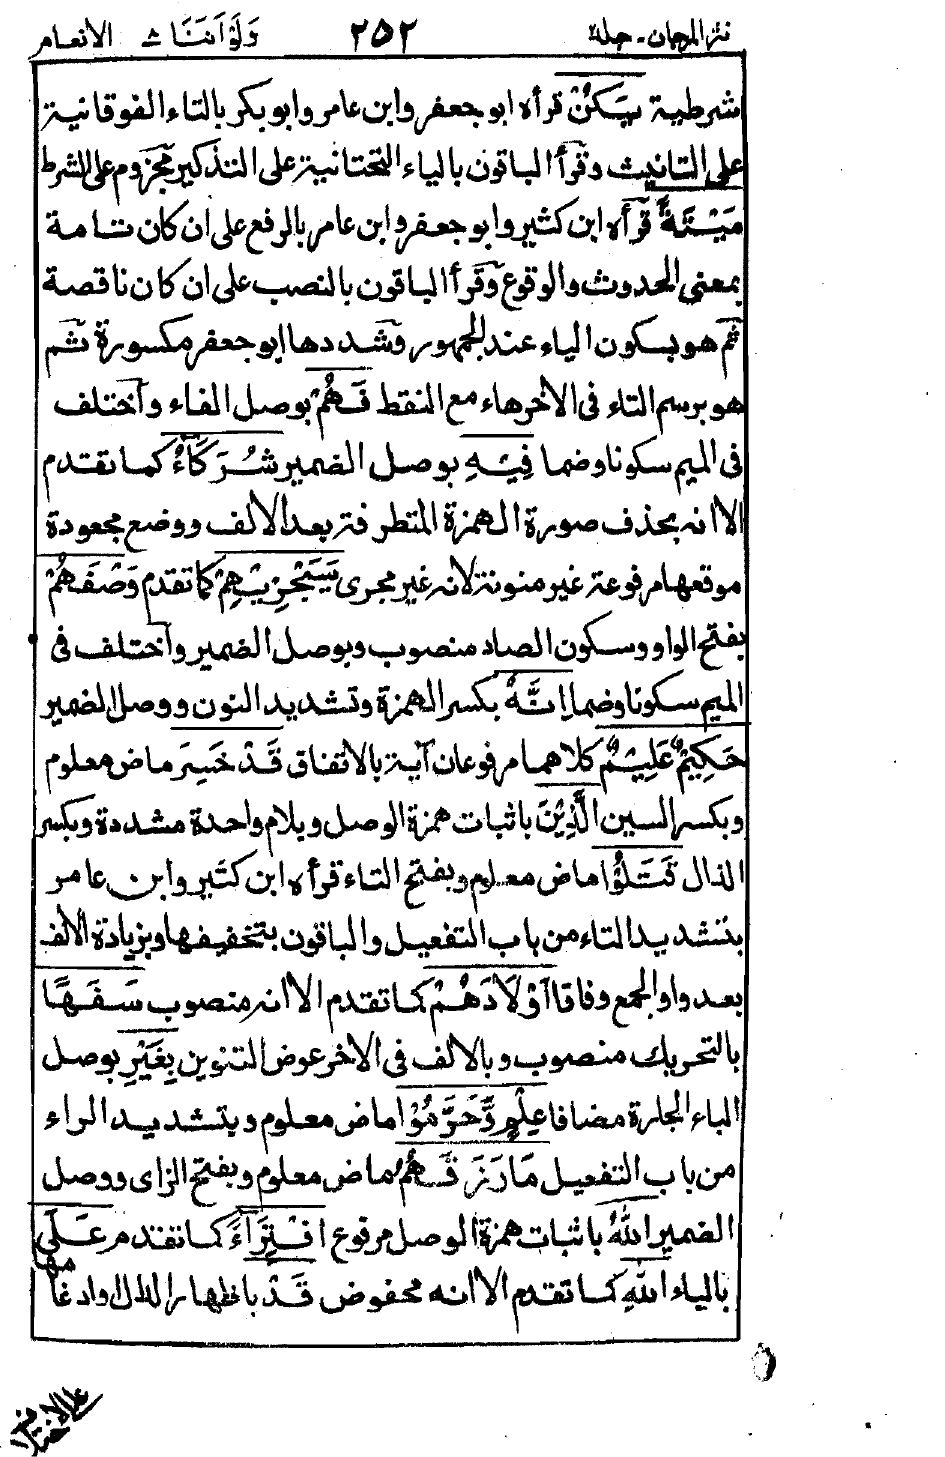 نثر المرجان - جلد ٢٥٢ وَلَوْ أَنَّنَا ٨ الانعام
شرطية يَكُنْ قرأه ابو جعفر وابن عامر وابو بكر بالتاء الفوقانية
على التانيث وقرأ الباقون بالياء التحتانية على التذكير مجزوم على الشرط
مَيْتَةً قرأه ابن كثير وابو جعفر وابن عامر بالرفع على ان كان تامة
بمعنى الحدوث والوقوع وقرأ الباقون بالنصب على ان كان ناقصة
ثم هو بسكون الياء عند الجمهور وشددها ابو جعفر مكسورة ثم
هو برسم التاء فى الاخر هاء مع النقط فَهُمْ بوصل الفاء واختلف
فى الميم سكونا وضما فِيْهِ بوصل الضمير شُرَكَاءُ كما تقدم
الا انه بحذف صورة الهمزة المتطرفة بعد الالف ووضع مجعودة
موقعها مرفوعة غير منونة لانه غير مجرى سَيَجْزِيْهِمْ كما تقدم وَصْفَهُمْ
بفتح الواو وسكون الصاد منصوب وبوصل الضمير واختلف فى
الميم سكونا وضما اِنَّهٗ بكسر الهمزة وتشديد النون ووصل الضمير
حَكِيْمٌ عَلِيْمٌ كلاهما مرفوعان آية بالاتفاق قَدْ خَسِرَ ماض معلوم
وبكسر السين الَّذِيْنَ باثبات همزة الوصل وبلام واحدة مشددة وبكسر
الذال قَتَلُوْا ماض معلوم وبفتح التاء قرأه ابن كثير وابن عامر
بتشديد التاء من باب التفعيل والباقون بتخفيفها وبزيادة الالف
بعد واو الجمع وفاقا اَوْلَادَهُمْ كما تقدم الا انه منصوب سَفَهًا
بالتحريك منصوب وبالالف فى الاخر عوض التنوين بِغَيْرِ بوصل
الباء الجارة مضافا عِلْمٍ وَّحَرَّمُوْا ماض معلوم وبتشديد الراء
من باب التفعيل مَا رَزَقَهُمُ ماض معلوم وبفتح الزاى ووصل
الضمير اللهُ باثبات همزة الوصل مرفوع افْتِرَاءً كما تقدم عَلَى
بالياء اللهِ كما تقدم الا انه مخفوض قَدْ باظهار الدال وادغامها
على الاختلاف